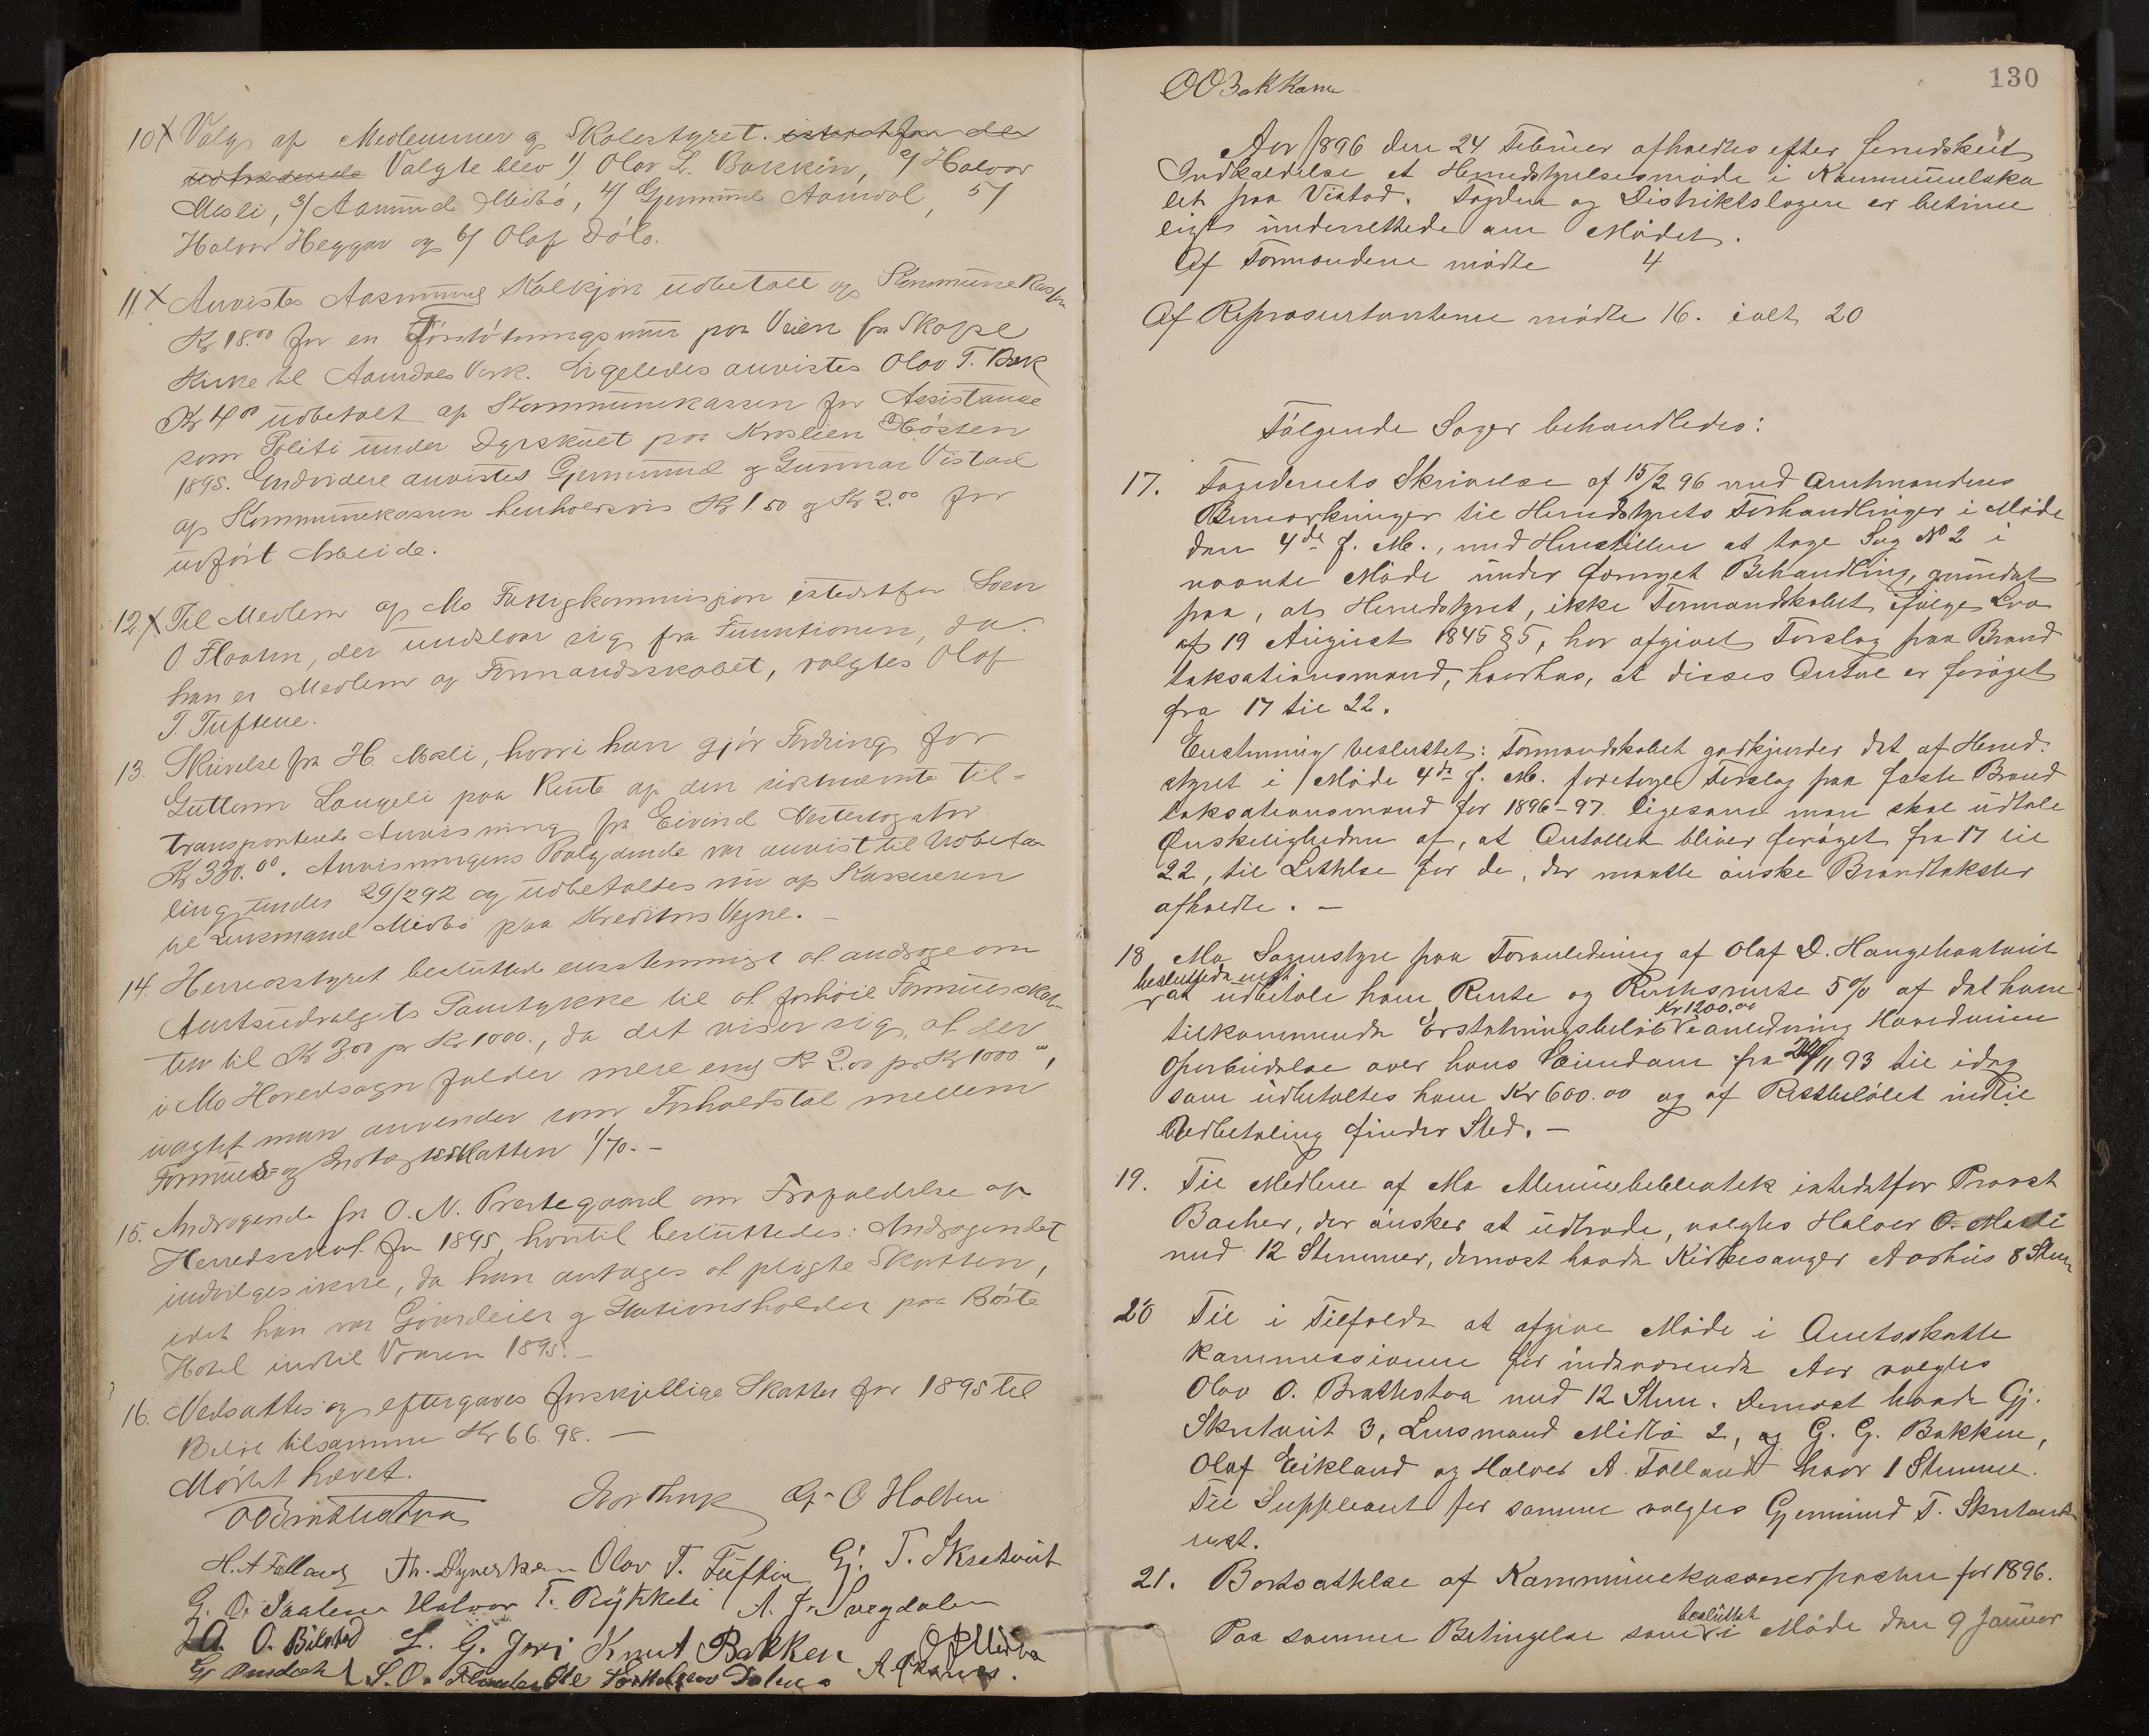 10 X Valg af Medlemmer af Skolestyret. istedetfor de
udtrædende Valgte blev 1/ Olav L. Bakkin, 2/ Halvor
Mosli, 3/ Aamund Midbö, 4/ Gjermund Aamdal, 5/
Halvor Heggtv og 6/ Olaf Dölo.
11 X Anvistes Aasmund Kalkjön udbetalt af Kommunekassen
Kr 18.00 for en Förstötningsmur paa Veien fra Skafse
Kirke til Aamdals Verk. Ligeledes anvistes Olav T. Bæk
Kr 4.00 udbetalt af Kommunekassen for Assistance
som Politi under Dyrskuet paa Kroslien Hösten
1895. Endvidere anvistes Gjermund og Gunnar Vistad
af Kommunekassen henholdsvis Kr 1.50 og Kr 2.00 for
udfört Arbeide.
12 X Til Medlem af Mo Fattigkommisjon istedetfor Soren
O. Flaatin, der undslaar sig fra Funktionen, da
han er Medlem af Formandsskabet, valgtes Olaf
T. Tuftene.
13. Skrivelse fra H. Mosli, hvori han gjör Fordring for
Guttorm Laugeli paa Rente af den sidstnævnte til-
transporterede Anvisning fra Eivind Vestersogator
Kr 330.00. Anvisningens Paalydende var anvist til Udbeta
ling under 29/2 92 og udbetaltes nu af Kassereren
til Lensmand Midbö paa Kreditors Vegne. –
14. Herredsstyret besluttede enstemmigt at andrage om
Amtsudvalgets Samtykke til at forhöie Formuesskat-
ten til Kr 3.00 pr Kr 1000., da det viser sig, at der
i Mo Hovedsogn falder mere end Kr 2.00 pr Kr 1000.00,
uagtet man anvender som Forholdstal mellem
Formues- og Indtægtsskatten 1/70. –
15. Andragende fra O. N. Prestegaard om Frafaldelse af
Herredsskat for 1895, hvortil besluttedes: Andragendet
indvilges ikke, da han antages at pligte Skatten,
idet han var Gaardeier og Stationsholder paa Börte
Hotel indtil Vaaren 1895. –
16. Nedsattes og eftergaves forskjellige Skatter for 1895 til
Belöb tilsammen Kr 66.98. –
Mödet hævet.
OO Brathestraa G. O Holten
H. A Folland Th. Dynerksen Olav T. Tuftin Gj. T. Skretveit
G. O. Saalen Halvor T. Rykkeli A. J. Svegdalen
A. O. Bilstad L. G. Jori Knut Bakken O Midbø
130
OO Bakkane
Aar 1896 den 24 Februer afholdtes efter forudskeet
Indkaldelse et Herredstyrelsesmøde i Kommuneloka
let paa Vistad. Fogden og Distriktslægen er betime
ligt underrettede om Mödet.
Af Formændene mödte 4
Af Repræsentanterne mödte 16. ialt 20
Fölgende Sager behandledes:
17. Fogderiets Skrivelse af 15/2 96 med Amtmandens
Bemærkninger til Herredstyrets Forhandlinger i Möde
den 4de f. M., med Henstillen at tage Sag No 2 i
nævnte Möde under fornyet Behandling, grundet
paa, at Herredstyret, ikke Formandskabet ifölge Lov
af 19 August 1845 § 5, har afgivet Forslag paa Brand
taksationsmænd, hvorhos, at disses Antal er foröget
fra 17 til 22.
Enstemmig besluttet: Formandskabet godkjender det af Herred-
styret i Möde 4de f. M. foretagne Forslag paa faste Brand
taksationsmænd for 1896-97. ligesom man skal udtale
Ønskeligheden af, at Antallet bliver foröget fra 17 til
22, til Lettelse for de, der maatte önske Brandtakster
afholdte. –
18 Mo Sognestyre paa Foranledning af Olaf D. Haugehaatveit
besluttede enst.
at udbetale ham Rente og Rentesrente 5 % af det ham
Kr 1200.00
tilkommende Erstatningsbelöb i anledning Hovedveiens
Opærbeidelse over hans Eiendom fra 20/11 93 til idag
som udbetaltes ham Kr 600.00 og af Restbelöbet indtil
Udbetaling finder Sted. –
19. Til Medlem af Mo Almuebibliotek istedetfor Provst
Bacher, der önsker at udtræde, valgtes Halvor O. Mosli
med 12 Stemmer, dernæst havde Kirkesanger Aarhus 8 Stem
20 Til i Tilfælde at afgive Möde i Amtsskatte
kommissionen for indeværende Aar valgtes
Olav O. Brathstraa med 12 Stem. Dernæst havde Gj.
Skretveit 3, Lensmand Midbö 2, og G. G. Bakken,
Olaf Eikland og Halvor A. Folland hver 1 Stemme.
Til Suppleant for samme valgtes Gjermund T. Skretveit
enst.
21. Bortsættelse af Kommunekassererposten for 1896.
besluttet
Paa samme Betingelse som i Möde den 9 Januer